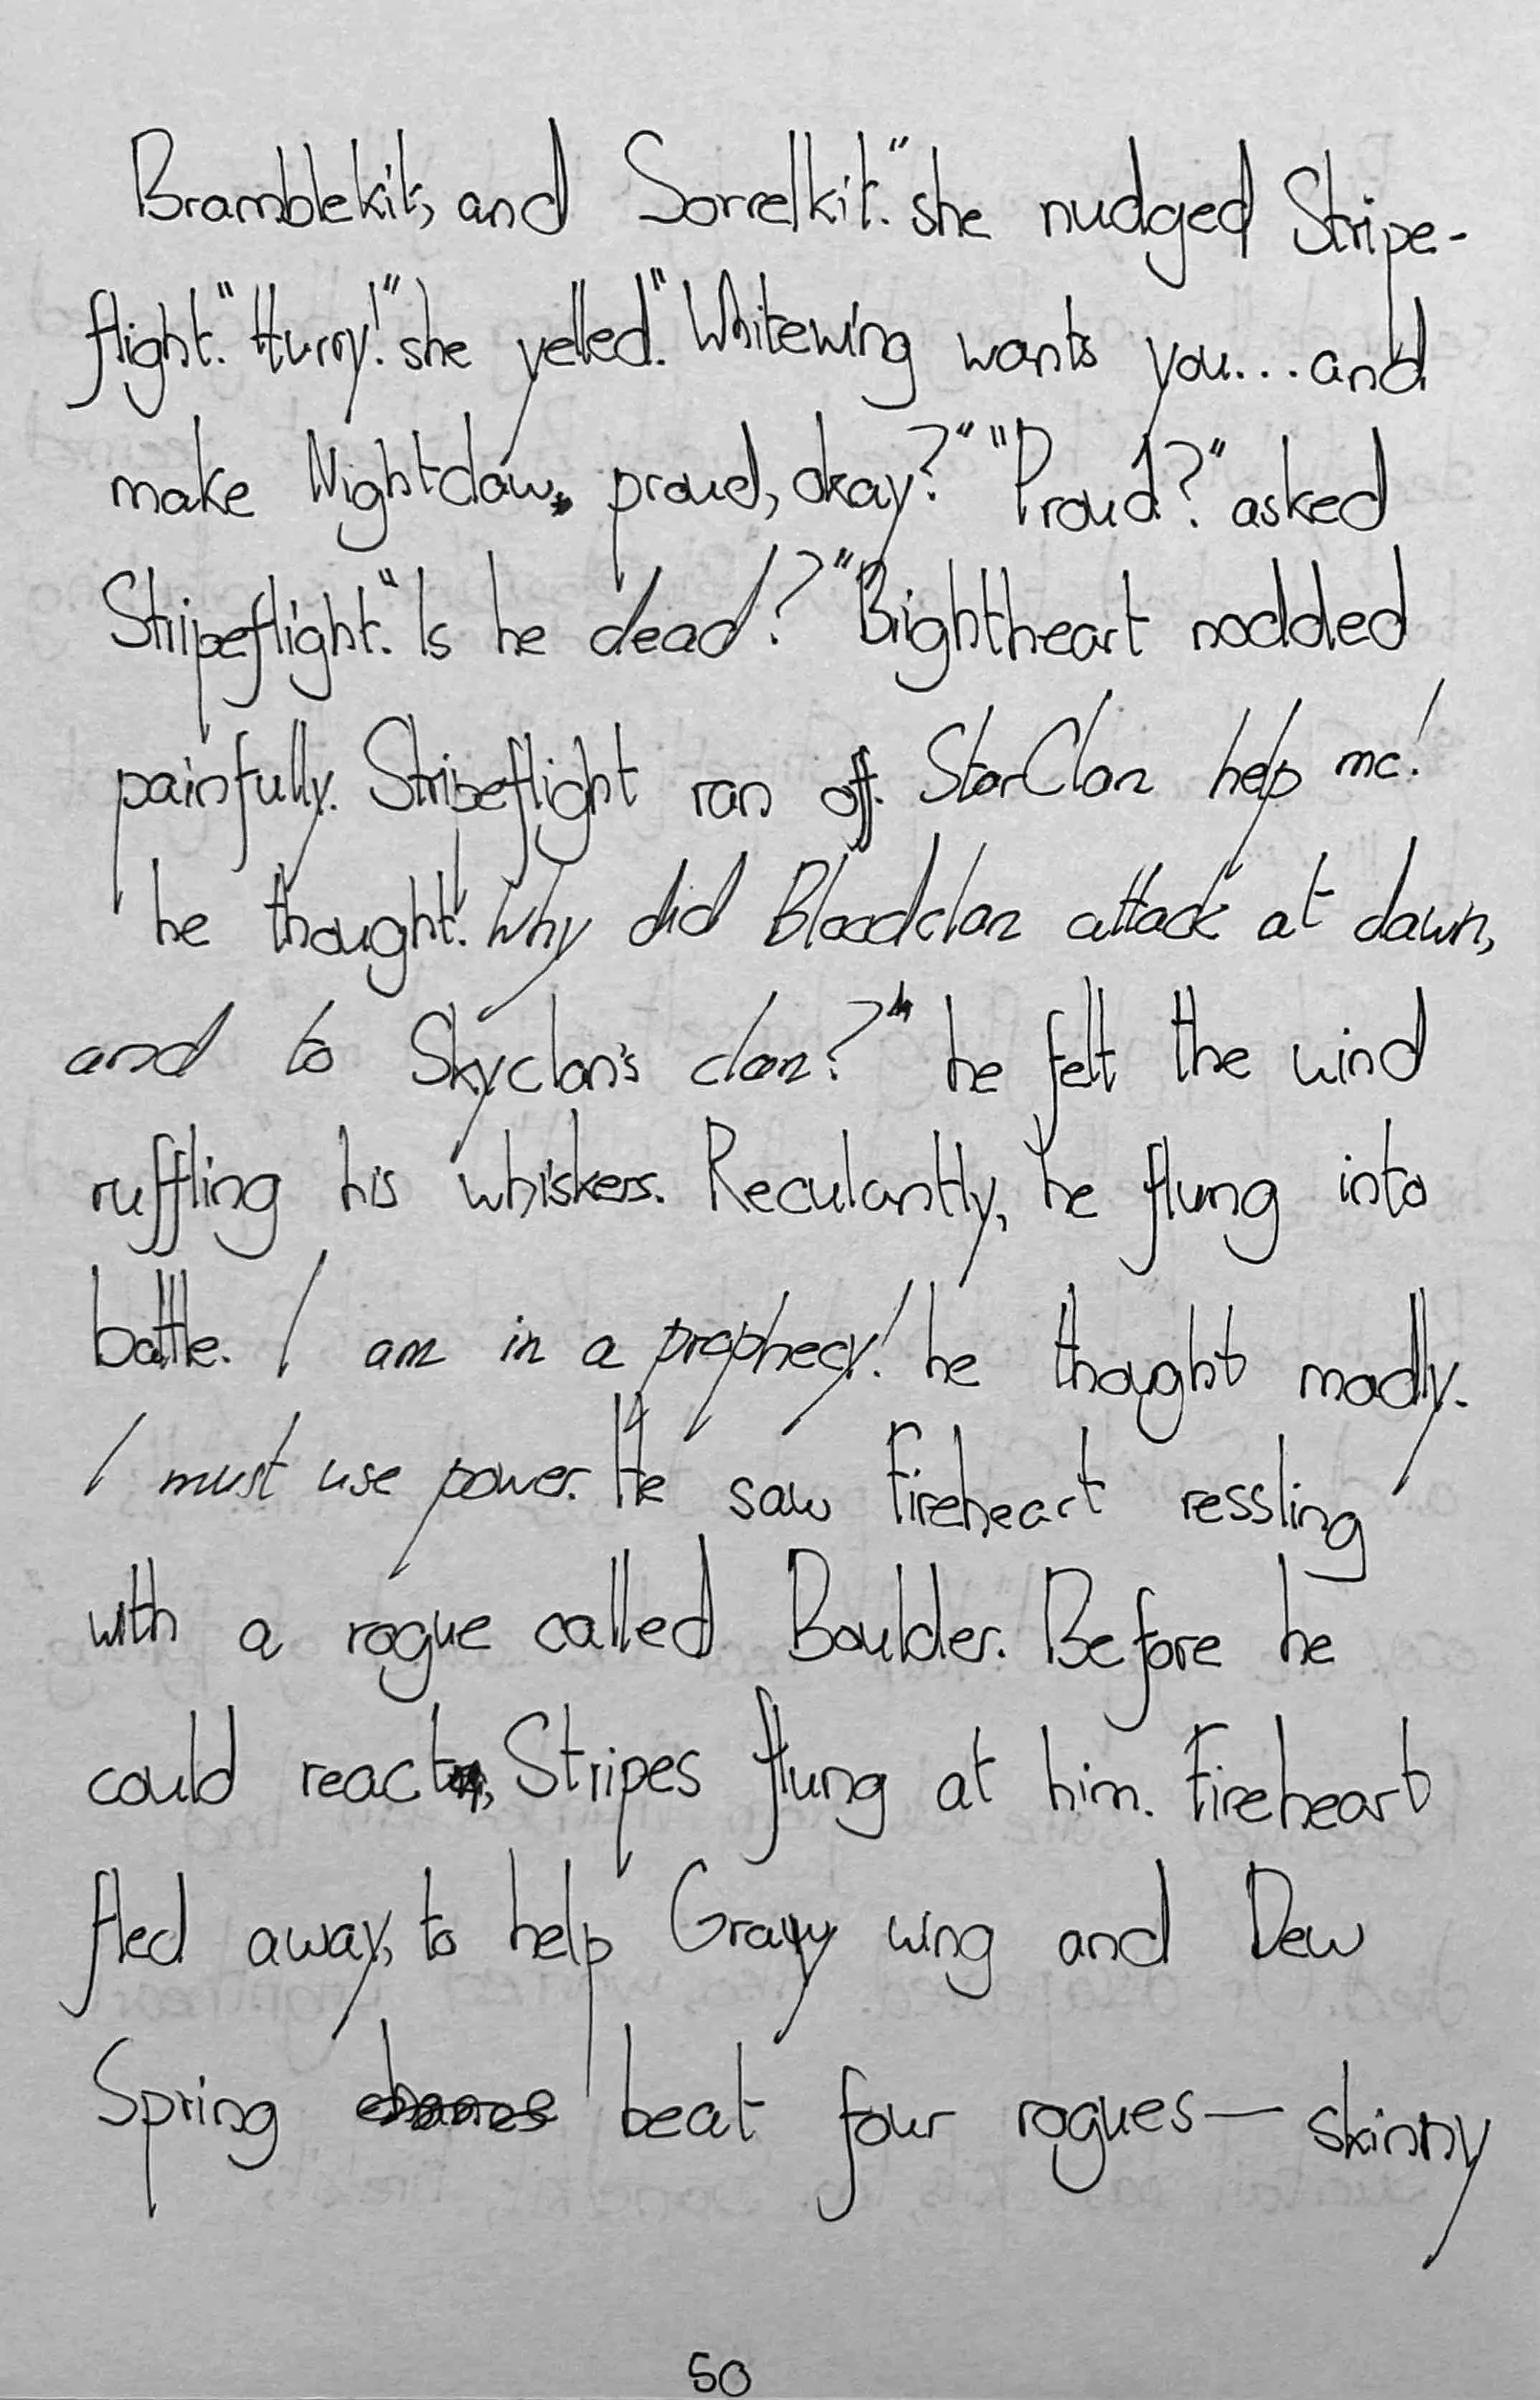 Bramblekit, and Sorrelkit." she nudged Stripe-
flight. "Hurry!" she yelled. "Whitewing wants you... and
make Nightclaw proud, okay?" "Proud?" asked
Stripeflight. "Is he dead?" Brightheart nodded
painfully. Stripeflight ran off. StarClan help me!
he thought. Why did Bloodclan attack at dawn,
and to Skyclan's clan?" he felt the wind
ruffling his whiskers. Reculantly, he flung into
battle. I am in a prophecy! he thought madly.
I must use power. He saw Fireheart ressling
with a rogue called Boulder. Before he
could react, Stripes flung at him. Fireheart
fled away, to help Gray wing and Dew
Spring beat four rogues— skinny
50